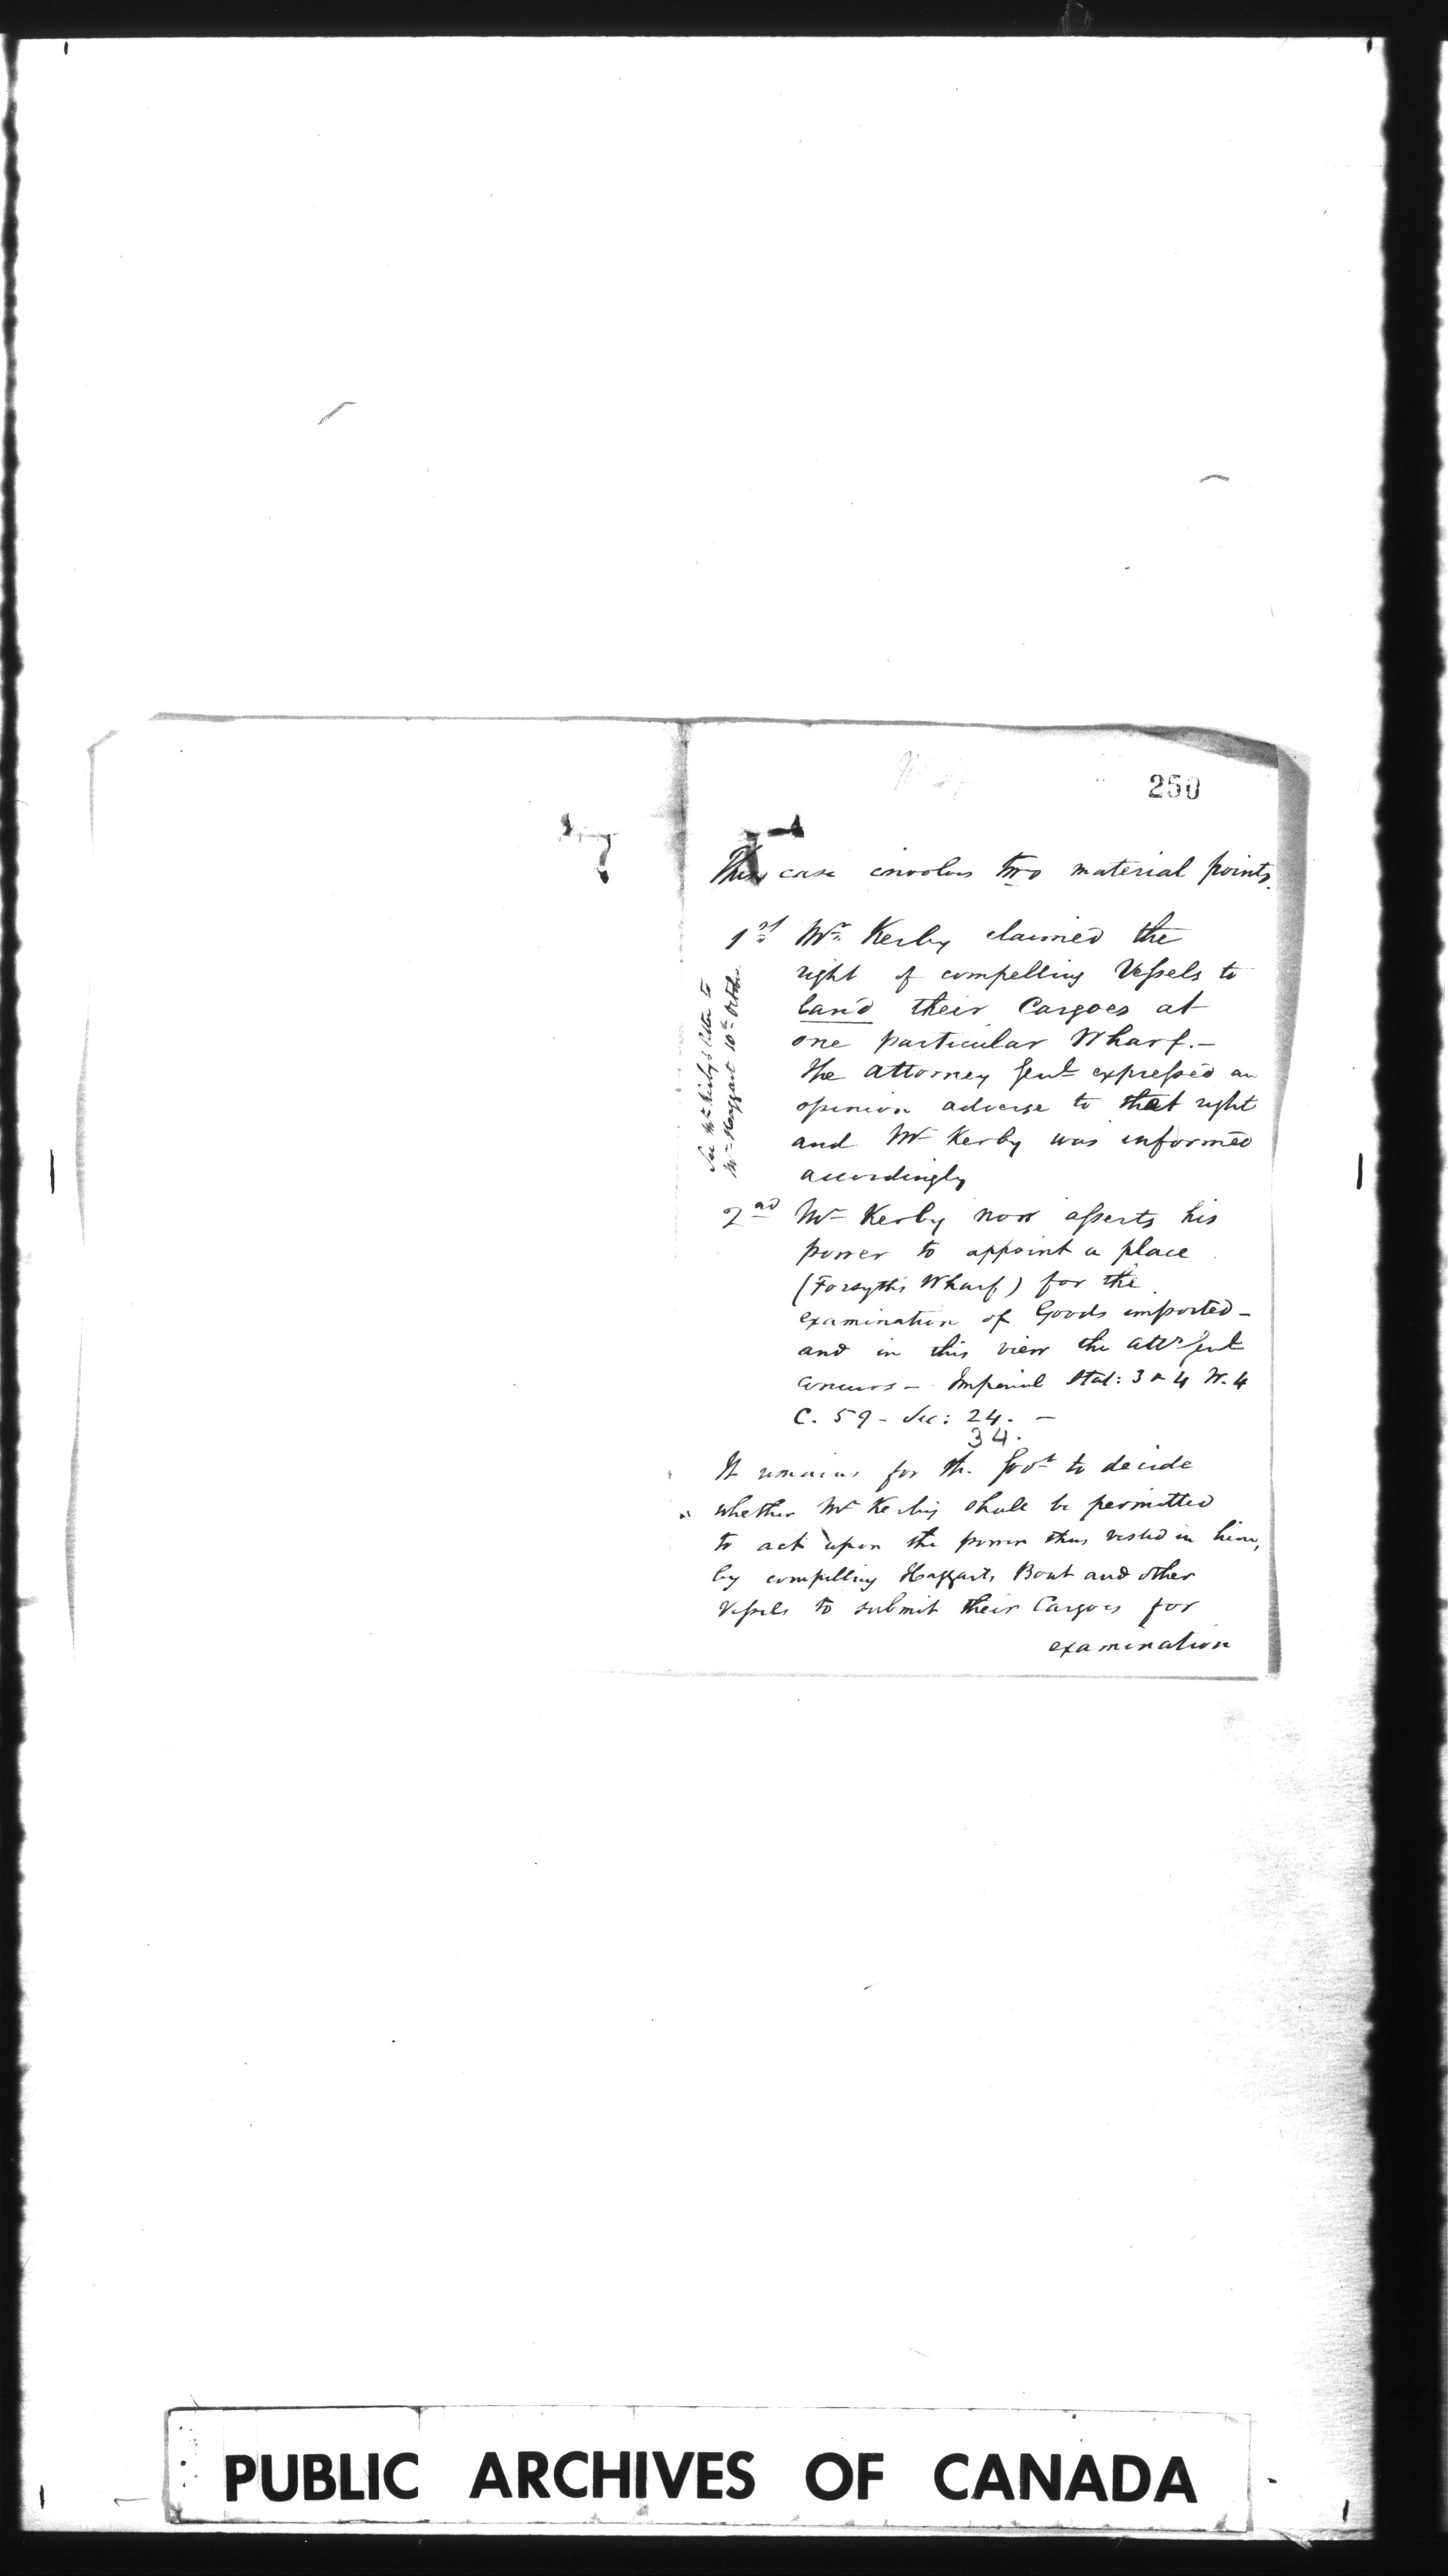 250
This case involves two material points.
1st Mr. Kerby claimed the
right of compelling Vessels to
land their Cargoes at
one particular Wharf.-
The Attorney Genl expressed an
opinion adverse to that right
and Mr Kerby was informed
accordingly
See Mr Kerby's letter to
Mr Haggart 10th October.
2nd Mr Kerby now asserts his
power to appoint a place
(Forsyths Wharf) for the
examination of Goods imported-
and in this view the Atty Genl
concurs - Imperial Stat: 3 & 4 W. 4
C. 59 - Sec: 24. -
34.
It remains for the Govt to decide
whether Mr Kerby shall be permitted
to act upon the power thus vested in him,
by compelling Haggarts Boat and other
Vessels to submit their Cargoes for
examination
PUBLIC ARCHIVES OF CANADA